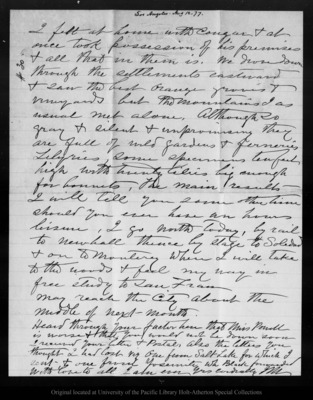 Los Angeles Aug 12. 77.
I felt at home with Congar & at
once took possession of his premises
& all that in them is. We drove down
through the settlements eastward
& saw the best orange groves &
vineyards but the mountains I as
usual met alone. Although so
gray & silent & unpromising they
are full of wild gardens & ferneries
Lilyries, some specimens ten feet
high with twenty lilies big enough
for bonnets. The main results
I will tell you some other time
should you ever have an hours
leisure. I go north today, by rail
to Newhall thence by stage to Soledad
& on to Monterey where I will take
to the woods & feel my way in
free study to San Fran
May reach the City about the
middle of next month
Heard through your factor here that Miss
is worse & that you would
received your letter & Postal. Also the letters you
thought I had lost viz one from Salt Lake for which I
sent & one from Yosemite which Black forwarded
With love to all I am ever yours cordially J.M.
Original located at University of the Pacific Library Holt-Atherton Special Collections